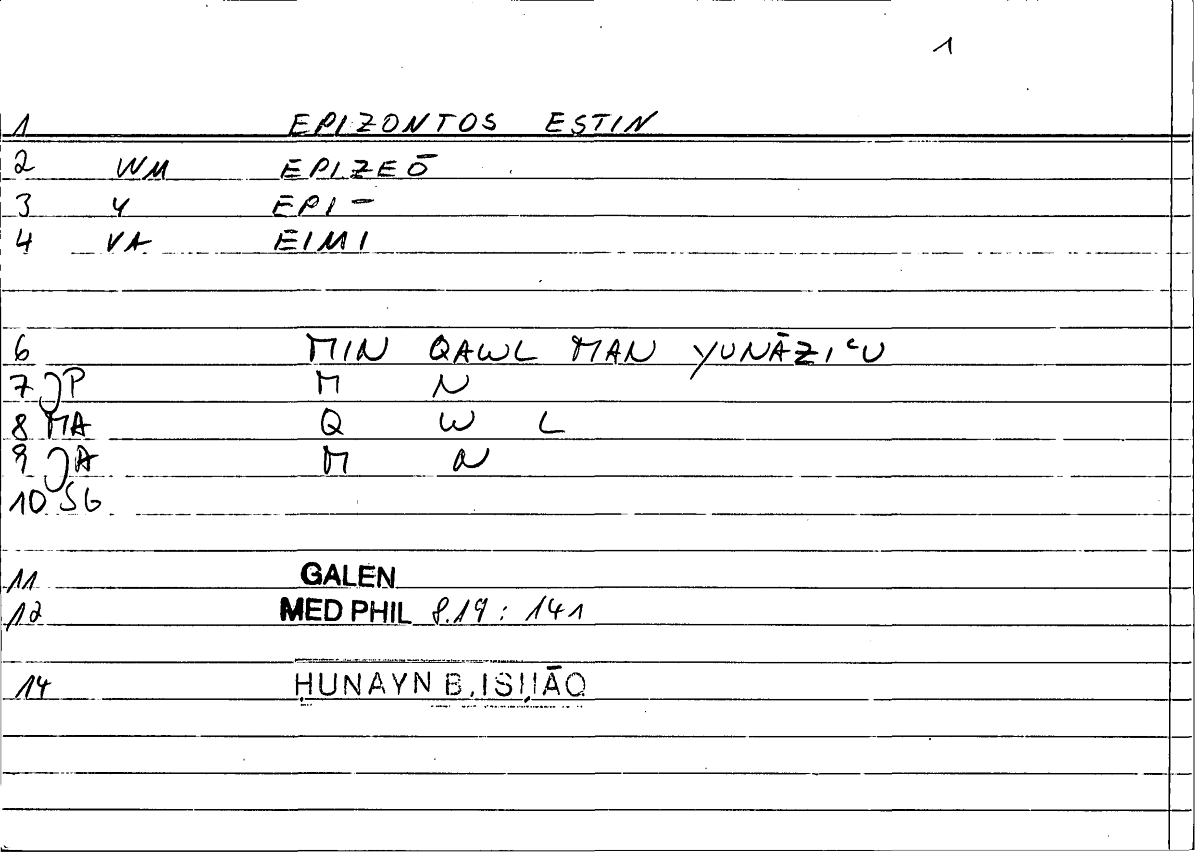 1
1 EPIZONTOS ESTIN
2 WM EPIZEŌ
3 Y EPI-
4 VA EIMI
6 MIN QAWL MAN YUNĀZIʿU
7 JP M N
8 MA Q W L
9 JA M N
10 SG
11 GALEN
12 MED PHIL 8.19 : 141
14 ḤUNAYN B. ISḤĀQ